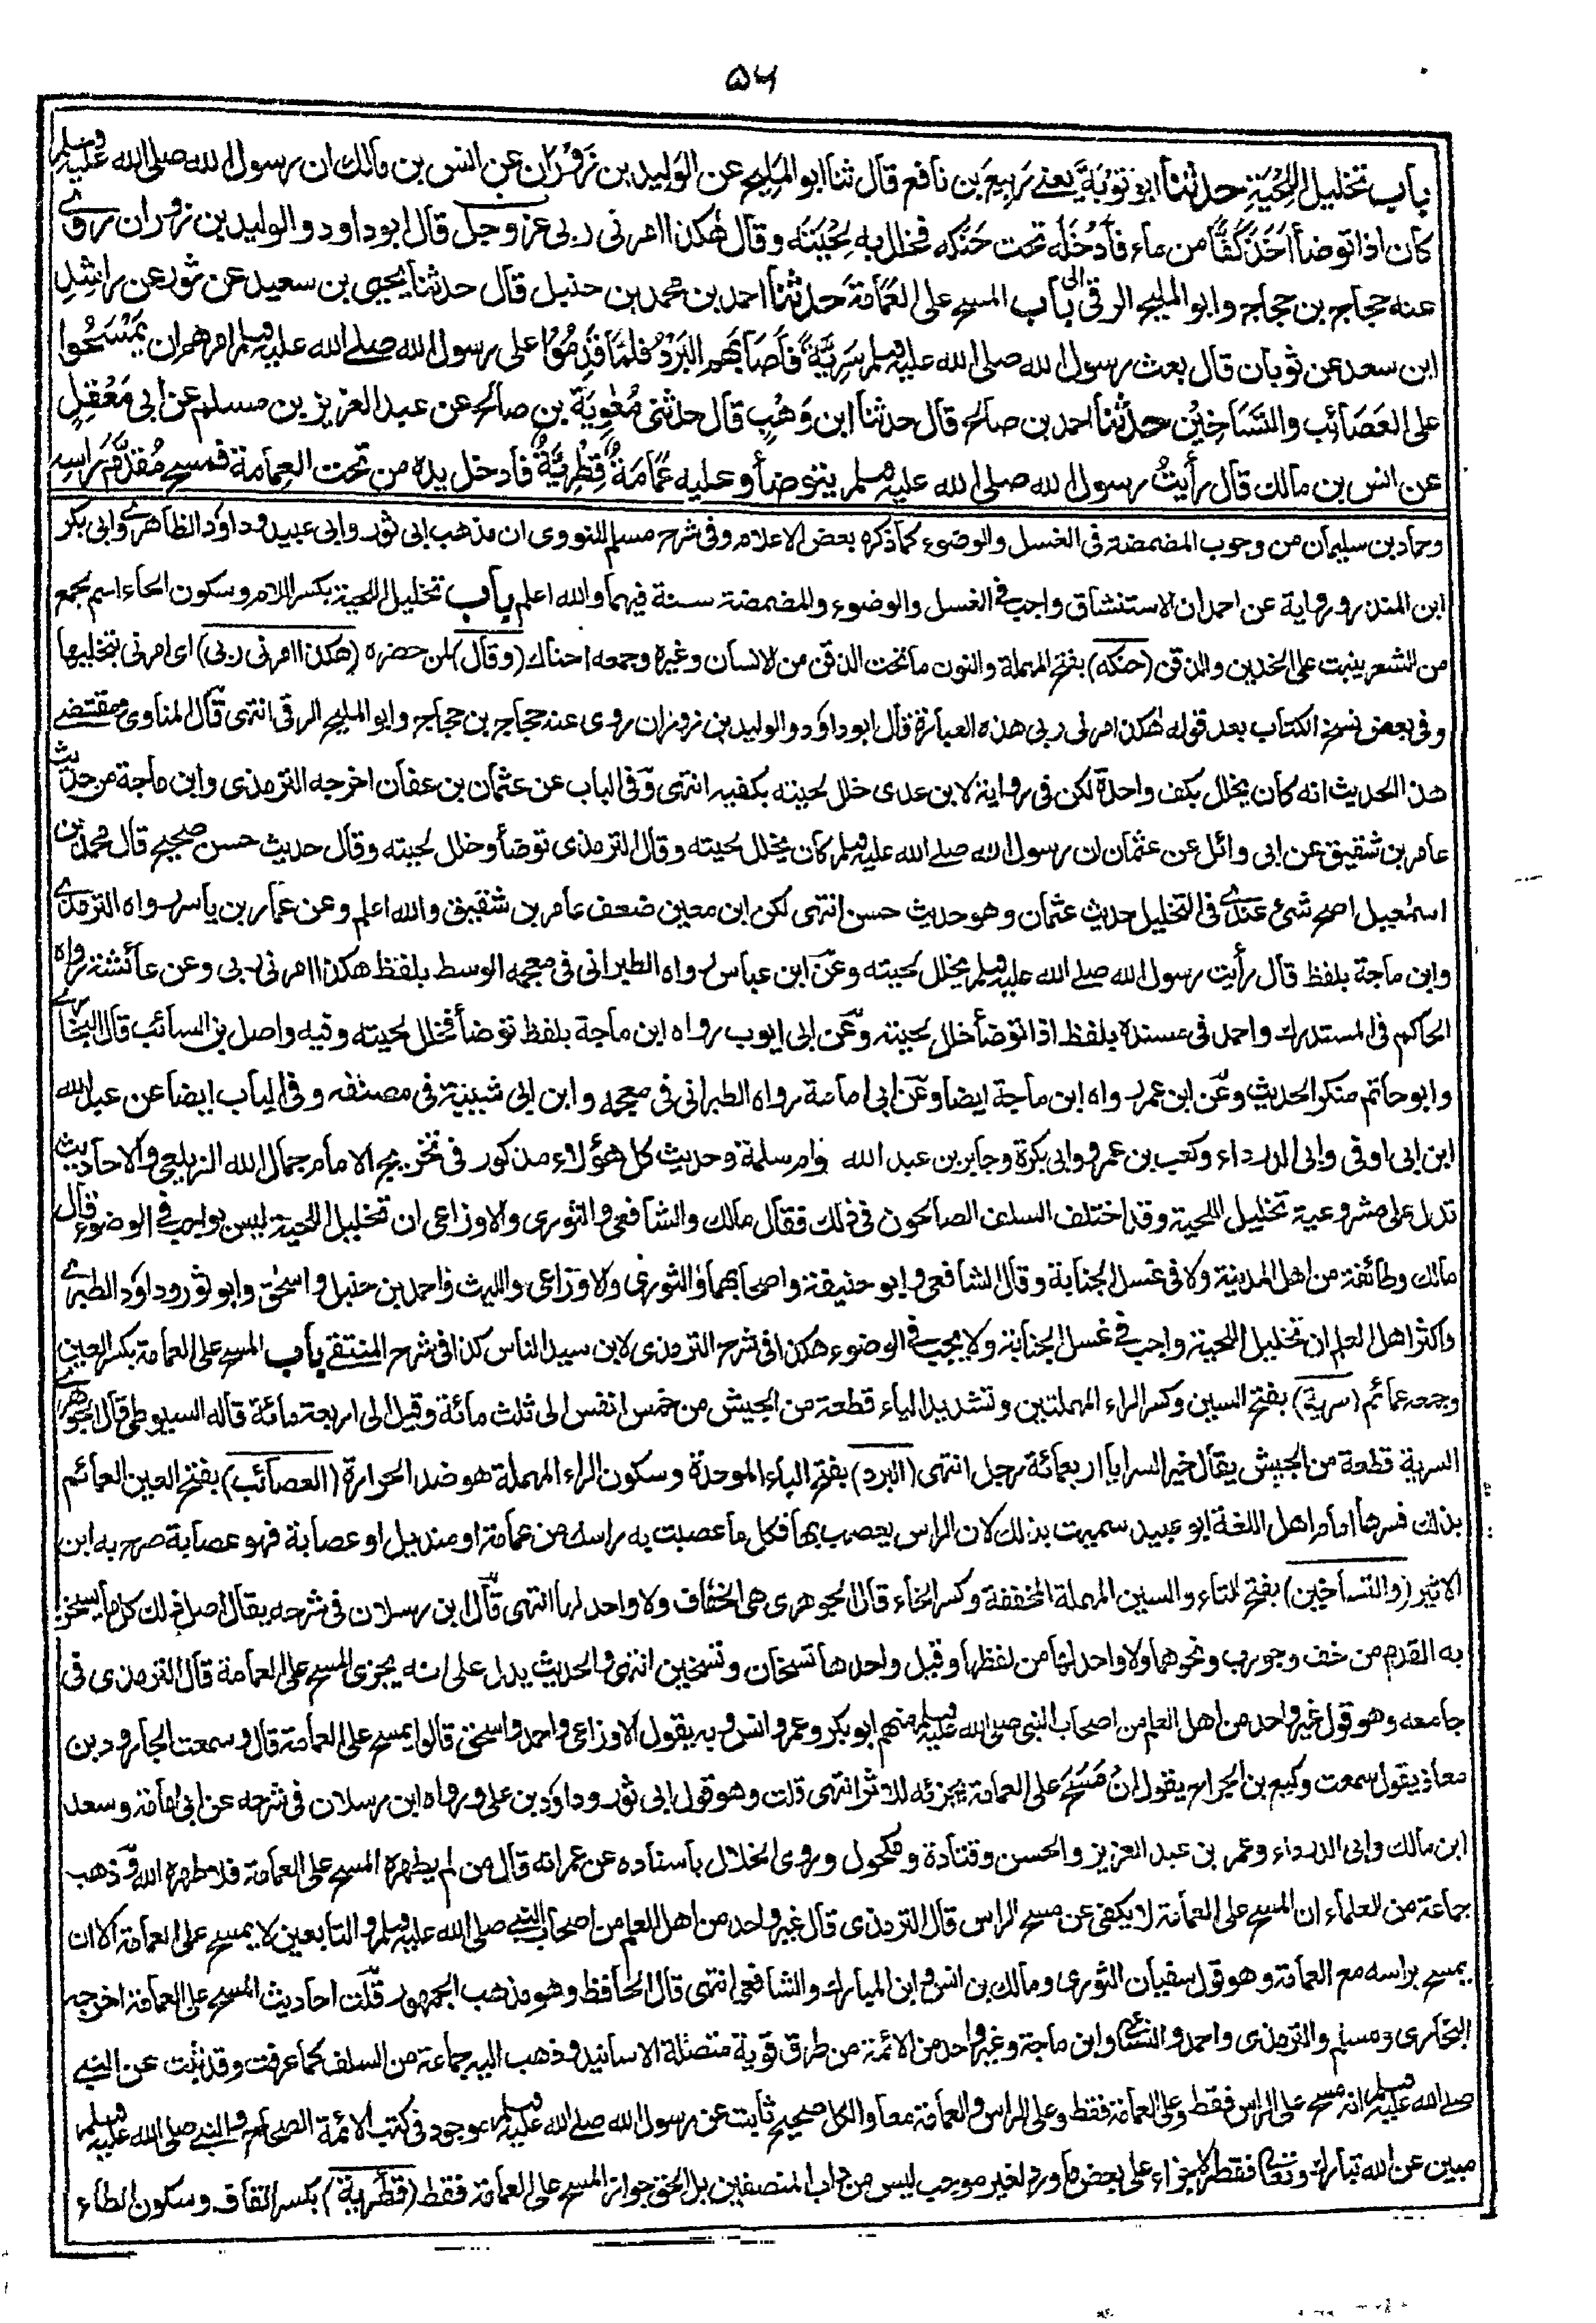 ۵۶
باب تخليل اللِّحْيَةِ حدثنا ابو تَوْبَةَ يعنى رَبِيعَ بن نافع قال ثنا ابو المَلِيحِ عن الوَليد بن زَوْرَان عن انس بن مالك ان رسول الله صلى الله عليه وسلم
كان اذا توضأ اَخَذَ كَفًّا من ماء فأَدْخَلَه تحت حَنَكِه فخلل به لِحْيَتَه وقال هٰكذا امرنى ربى عز وجل قال ابو داود والوليد بن زوران روى
عنه حجاج بن حجاج وابو المليح الرقى باب المسح على العَمَامَةِ حدثنا احمد بن محمد بن حنبل قال حدثنا يحيى بن سعيد عن ثور عن راشِدِ
ابن سعد عن ثوبان قال بعث رسول الله صلى الله عليه وسلم سَرِيَّةً فَاَصَابَهم البَرْدُ فلمَّا قَدِمُوْا على رسول الله صلے الله عليه وسلم امرهم ان يَمْسَحُوا
على العَصَائب والتَّسَاخِيْن حدثنا احمد بن صالح قال حدثنا ابن وَهْبٍ قال حدثنى مُعٰوِيَةُ بن صالح عن عبد العزيز بن مسلم عن ابى مَعْقِلٍ
عن انس بن مالك قال رأيتُ رسول الله صلى الله عليه وسلم يتوضأ وعليه عَمَامَةٌ قِطْرِيَّةٌ فأدخل يده من تحت العِمامة فمسح مُقَدَّمَ راسه
وحماد بن سليمان من وجوب المضمضة فى الغسل والوضوء كما ذكره بعض الاعلام وفى شرح مسلم للنووى ان مذهب ابى ثور وابى عبيد وداود الظاهرى وابى بكر
ابن المنذر ورواية عن احمد ان الاستنشاق واجب فى الغسل والوضوء والمضمضة سنة فيهما والله اعلم باب تخليل اللحية بكسر اللام وسكون الحاء اسم يجمع
من الشعر ينبت على الخدين والذقن (حنكه) بفتح المهملة والنون ما تحت الذقن من الانسان وغيره وجمعه احناك (وقال) لمن حضره (هكذا امرنى ربى) اى امرنى بتخليلها
وفى بعض نسخ الكتاب بعد قوله هٰكذا امرنى ربى هذه العبارة قال ابو داؤد والوليد بن زوران روى عنه حجاج بن حجاج وابو المليح الرقى انتهى قال المناوى ومقتضے
هذا الحديث انه كان يخلل بكف واحدة لكن فى رواية لابن عدى خلل لحيته بكفيه انتهى وفى الباب عن عثمان بن عفان اخرجه الترمذى وابن ماجة من حديث
عامر بن شقيق عن ابى وائل عن عثمان ان رسول الله صلے الله عليه وسلم كان يخلل لحيته وقال الترمذى توضأ وخلل لحيته وقال حديث حسن صحيح قال محمد بن
اسمٰعيل اصح شئ عندى فى التخليل حديث عثمان وهو حديث حسن انتهى لكن ابن معين ضعف عامر بن شقيق والله اعلم وعن عمار بن ياسر رواه الترمذى
وابن ماجة بلفظ قال رأيت رسول الله صلے الله عليه وسلم يخلل لحيته وعن ابن عباس رواه الطبرانى فى معجمه الوسط بلفظ هكذا امرنى ربى وعن عائشة رواه
الحاكم فى المستدرك واحمد فى مسنده بلفظ اذا توضأ خلل لحيته وعن ابى ايوب رواه ابن ماجة بلفظ توضأ فخلل لحيته وفيه واصل بن السائب قال البخارى
وابو حاتم منكر الحديث وعن ابن عمر رواه ابن ماجة ايضا وعن ابى امامة رواه الطبرانى فى معجمه وابن ابى شيبة فى مصنفه وفى الباب ايضا عن عبد الله
ابن ابى اوفى وابى الدرداء وكعب بن عمرو وابى بكرة وجابر بن عبد الله وام سلمة وحديث كل هؤلاء مذكور فى تخريج الامام جمال الله الزيلعى والاحاديث
تدل على مشروعية تخليل اللحية وقد اختلف السلف الصالحون فى ذلك فقال مالك والشافعى والثورى والاوزاعى ان تخليل اللحية ليس بواجب فى الوضوء قال
مالك وطائفة من اهل المدينة ولا فى غسل الجنابة وقال الشافعى وابو حنيفة واصحابهما والثورى والاوزاعى والليث واحمد بن حنبل واسحٰق وابو ثور وداود الطبرے
واكثر اهل العلم ان تخليل اللحية واجب فى غسل الجنابة ولا يجب فى الوضوء هكذا فى شرح الترمذى لابن سيد الناس كذا فى شرح المنتقى باب المسح على العمامة بكسر العين
وجمعه عمائم (سرية) بفتح السين وكسر الراء المهملتين وتشديد الياء قطعة من الجيش من خمس انفس الى ثلث مائة وقيل الى اربعة مائة قاله السيوطى قال الجوهرى
السرية قطعة من الجيش يقال خير السرايا اربعمائة رجل انتهى (البرد) بفتح الباء الموحدة وسكون الراء المهملة هو ضد الحرارة (العصائب) بفتح العين العمائم
بذلك فسرها امام اهل اللغة ابو عبيد سميت بذلك لان الراس يعصب بها فكل ما عصبت به راسك من عمامة او منديل او عصابة فهو عصابة صرح به ابن
الاثير (والتساخين) بفتح التاء والسين المهملة المخففة وكسر الخاء قال الجوهرى هى الخفاف ولا واحد لها انتهى قال ابن رسلان فى شرحه يقال اصل ذلك كل ما يسخن
به القدم من خف وجورب ونحوهما ولا واحد لها من لفظها وقيل واحدها تسخان وتسخين انتهى والحديث يدل على انه يجزى المسح على العمامة قال الترمذى فى
جامعه وهو قول غير واحد من اهل العلم من اصحاب النبى صلى الله عليه وسلم منهم ابو بكر وعمر وانس وبه يقول الاوزاعى واحمد واسحٰق قالوا يمسح على العمامة قال وسمعت الجارود بن
معاذ يقول سمعت وكيع بن الجراح يقول انْ مَسَحَ على العمامة يجزئه للاثر انتهى قلت وهو قول ابى ثور وداود بن على ورواه ابن رسلان فى شرحه عن ابى امامة وسعد
ابن مالك وابى الدرداء وعمر بن عبد العزيز والحسن وقتادة ومكحول وروى الخلال باسناده عن عمر انه قال من لم يطهره المسح على العمامة فلا طهره الله وذهب
جماعة من العلماء ان المسح على العمامة لا يكفى عن مسح الراس قال الترمذى قال غير واحد من اهل العلم من اصحاب النبى صلى الله عليه وسلم والتابعين لا يمسح على العمامة الا ان
يمسح براسه مع العمامة وهو قول سفيان الثورى ومالك بن انس وابن المبارك والشافعى انتهى قال الحافظ وهو مذهب الجمهور قلت احاديث المسح على العمامة اخرجه
البخارى ومسلم والترمذى واحمد والنسائى وابن ماجة وغير واحد من الائمة من طرق قوية متصلة الاسانيد وذهب اليه جماعة من السلف كما عرفت وقد ثبت عن النبى
صلے الله عليه وسلم انه مسح على الراس فقط وعلى العمامة فقط وعلى الراس والعمامة معا والكل صحيح ثابت عن رسول الله صلے الله عليه وسلم موجود فى كتب الائمة الصحاح والنبى صلى الله عليه وسلم
مبين عن الله تبارك وتعالى فقصر الاجزاء على بعض ما ورد لغير موجب ليس من داب المنصفين بل الحق جواز المسح على العمامة فقط (قطرية) بكسر القاف وسكون الطاء